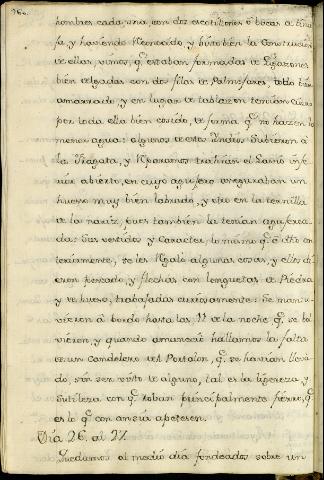 hombres cada una, con dos escotillones ô bocas de
y haviendo reconocido, y visto bien la Construcción
de ellas, vimos, q.e estaban formadas de
bien delgadas con dos filas de Palmejares, todo bien
amarrado, y en lugar de tablazon tenian
por toda ella bien cosido, de forma q.e no hazen la
menor agua: algunos de estos Yndios Subieron â
la Fragata, y Reparamos trahian el Lavio ynfe
rior abierto, en cuyo agujero aseguraban un
hueso muy bien labrado, y otro en la ternilla
de la nariz, pues tambien la tenian agujerea
da: Sus vestidos y Caracter, lo mismo q.e el dho an
teriormente, se les Regalo algunas cosas, y ellos di
eron pescado, y flechas con lenguetas de Piedra
y de hueso, trabajadas curiosamente: Se mantu
vieron â bordo hasta las 11 de la noche q.e se bol
vieron, y quando amanecio hallamos la falta
de un Candelero del Portalon, q.e se havian lleva
do, sin ser visto de alguno, tal es la ligereza, y
Sutileza con q.e roban principalmente fierro, q.e
es lo q.e con ansia apetecen.
Dia 26. al 27.
Quedamos al medio dia fondeados sobre un